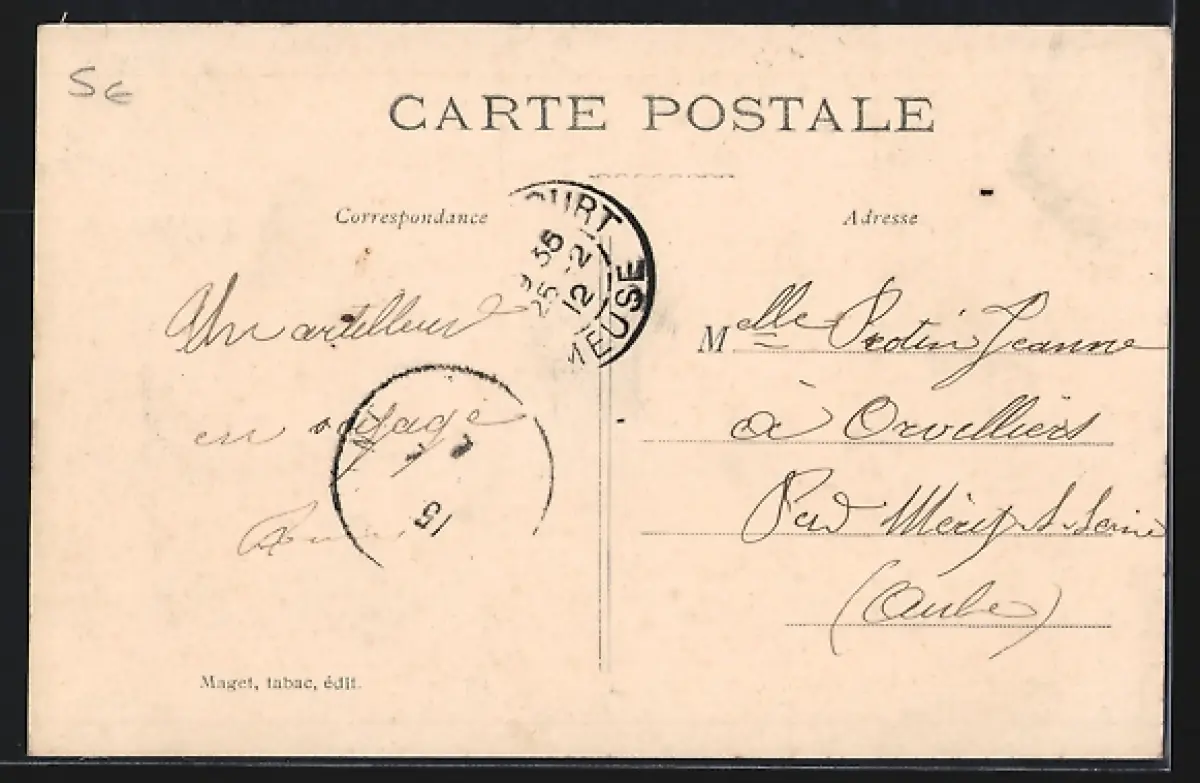 5€
CARTE POSTALE
Correspondance
Adresse
OURT
35
25-2
12
MEUSE
Un artilleur
en voyage
15
Melle Protin Jeanne
à Orvilliers
Par Méry-s-Seine
(Aube)
Maget, tabac, édit.